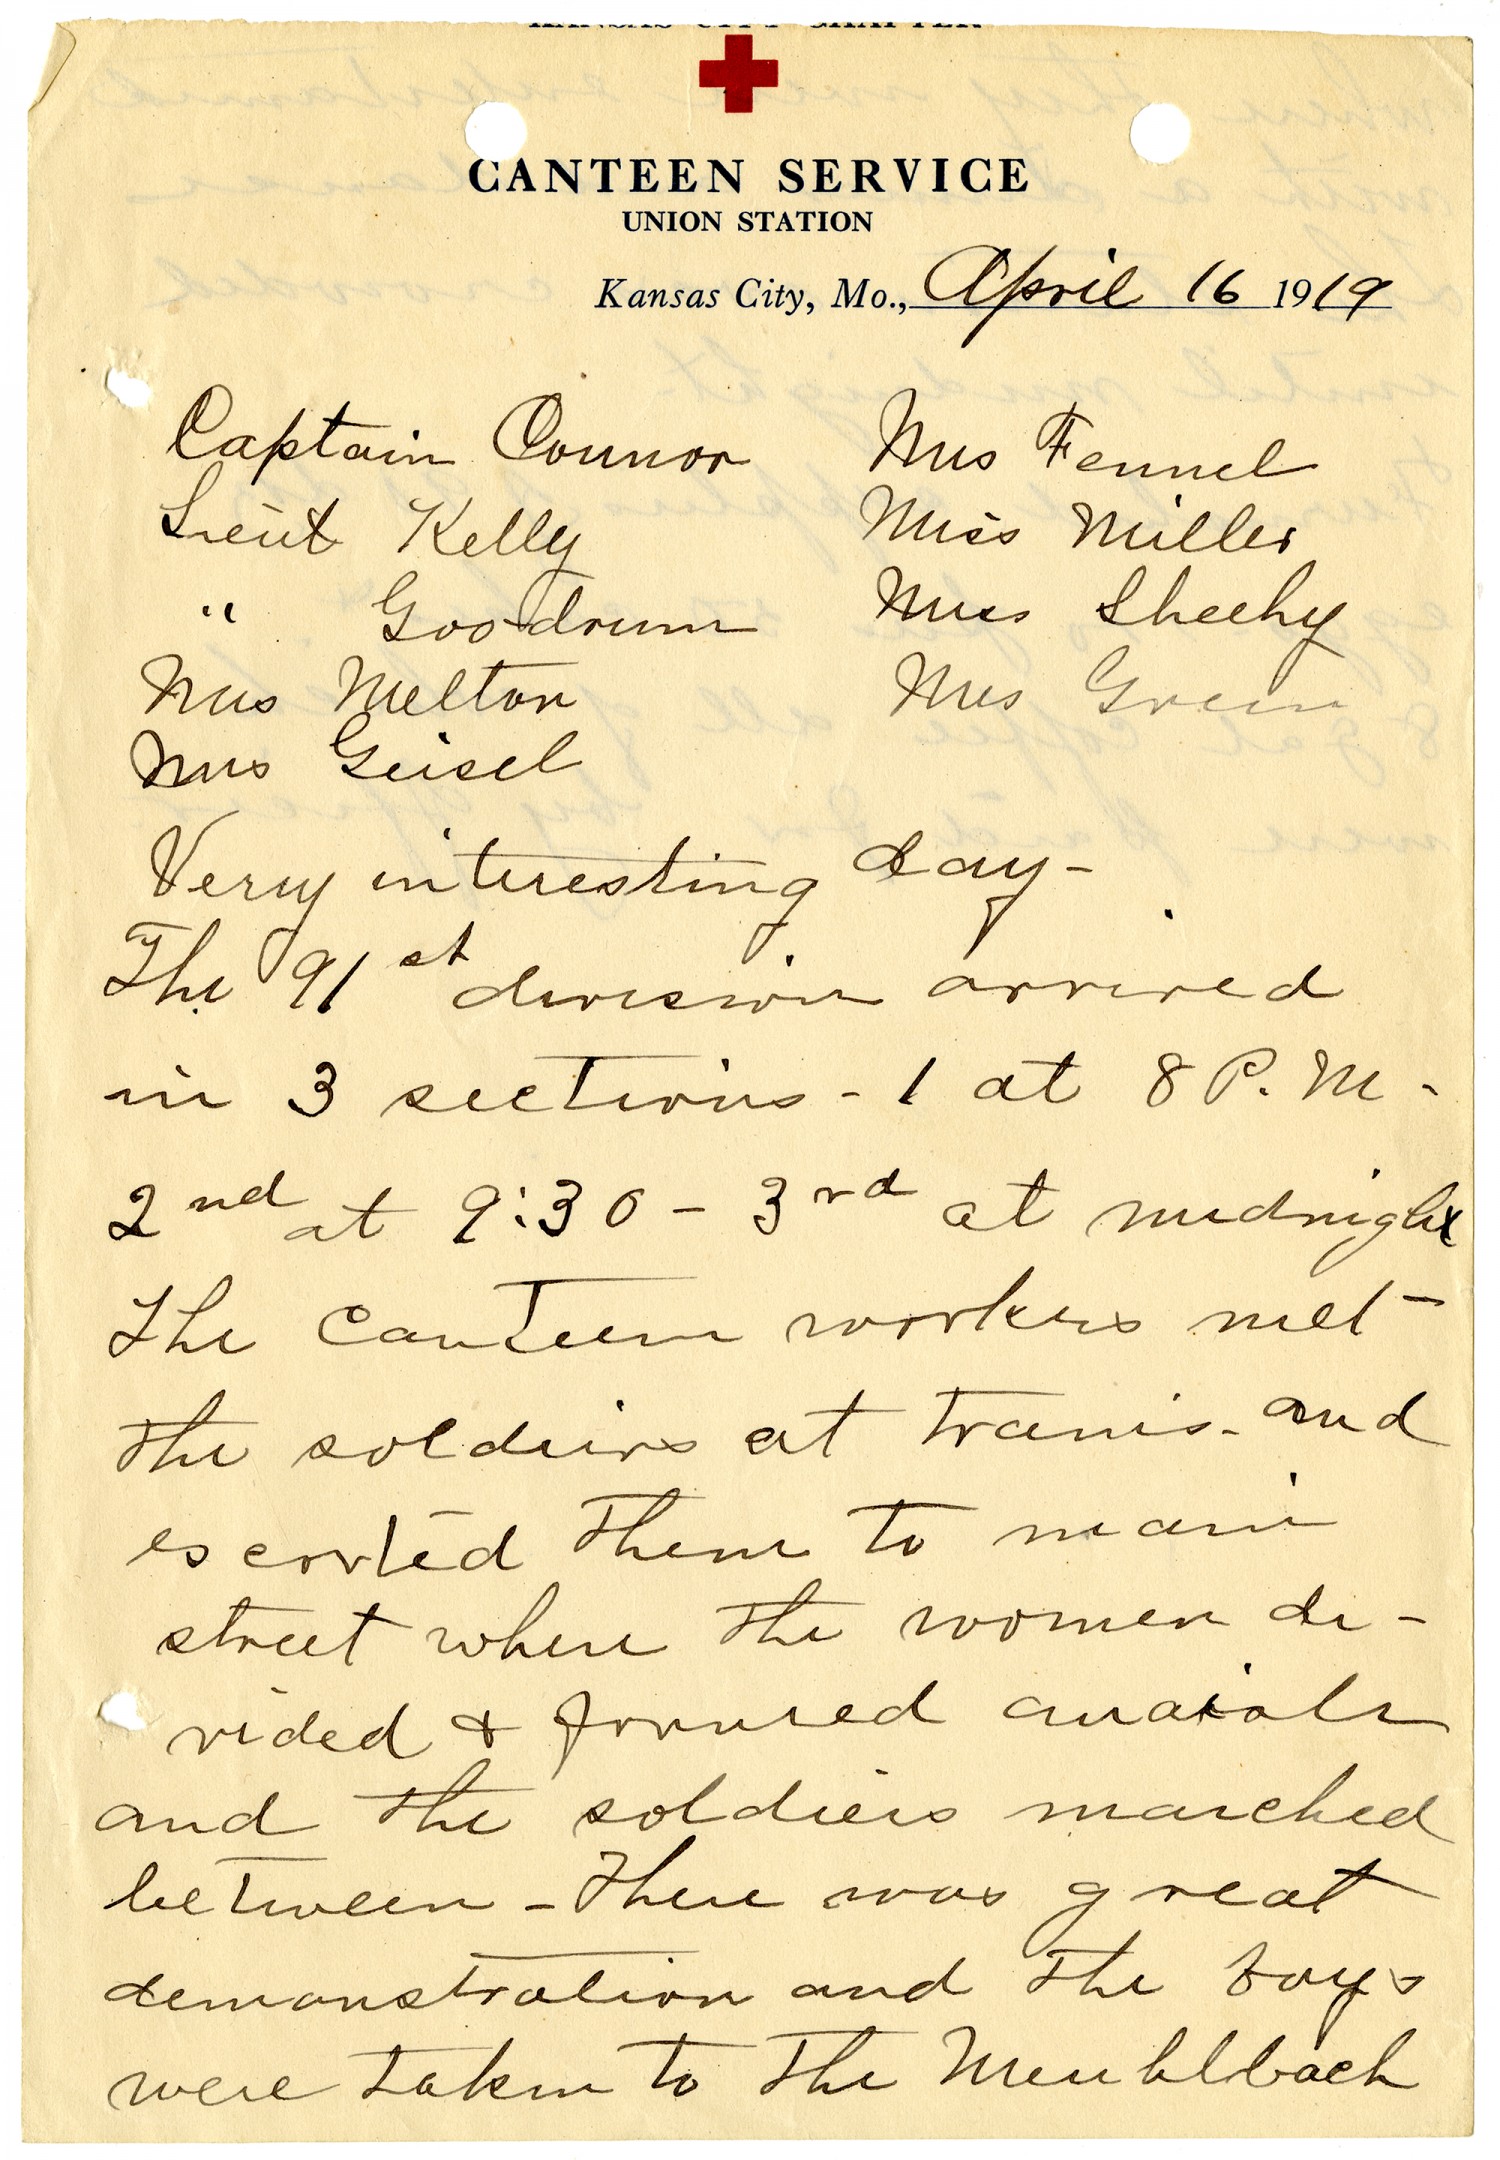 KANSAS CITY CHAPTER
CANTEEN SERVICE
UNION STATION
Kansas City, Mo., April 16 1919
Captain Connor
Lieut Kelly
" Goodrum
Mrs Melton
Mrs Geisel
Mrs Fennel
Miss Miller
Miss Sheehy
Mrs Green
Very interesting day -
The 91st division arrived
in 3 sections - 1 at 8 P. M -
2nd at 9:30 - 3rd at midnight
The Canteen workers met -
the soldiers at trains - and
escorted them to main
street where the women di -
vided & formed an aisle
and the soldiers marched
between - There was great
demonstration and the boys
were taken to the Meuhlbach